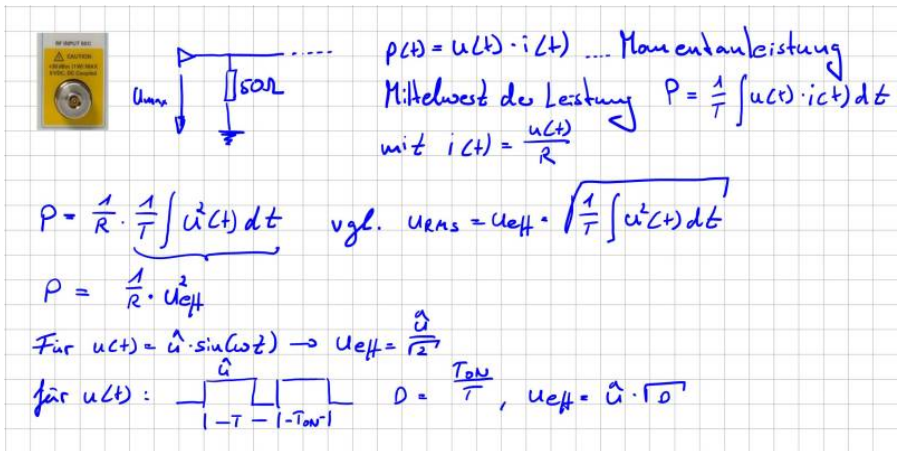 RF INPUT 50Ω
CAUTION
+30 dBm (1W) MAX
0 VDC, DC Coupled
Umax
50Ω
p(t) = u(t) · i(t) .... Momentanleistung
Mittelwert der Leistung P = 1/T ∫ u(t) · i(t) dt
mit i(t) = u(t)/R
P = 1/R · 1/T ∫ u²(t) dt vgl. URMS = Ueff = √(1/T ∫ u²(t) dt)
P = 1/R · U²eff
Für u(t) = û · sin(ωt) → Ueff = û/√2
für u(t) : û |-T-|-TON-| D = TON/T , Ueff = û · √D